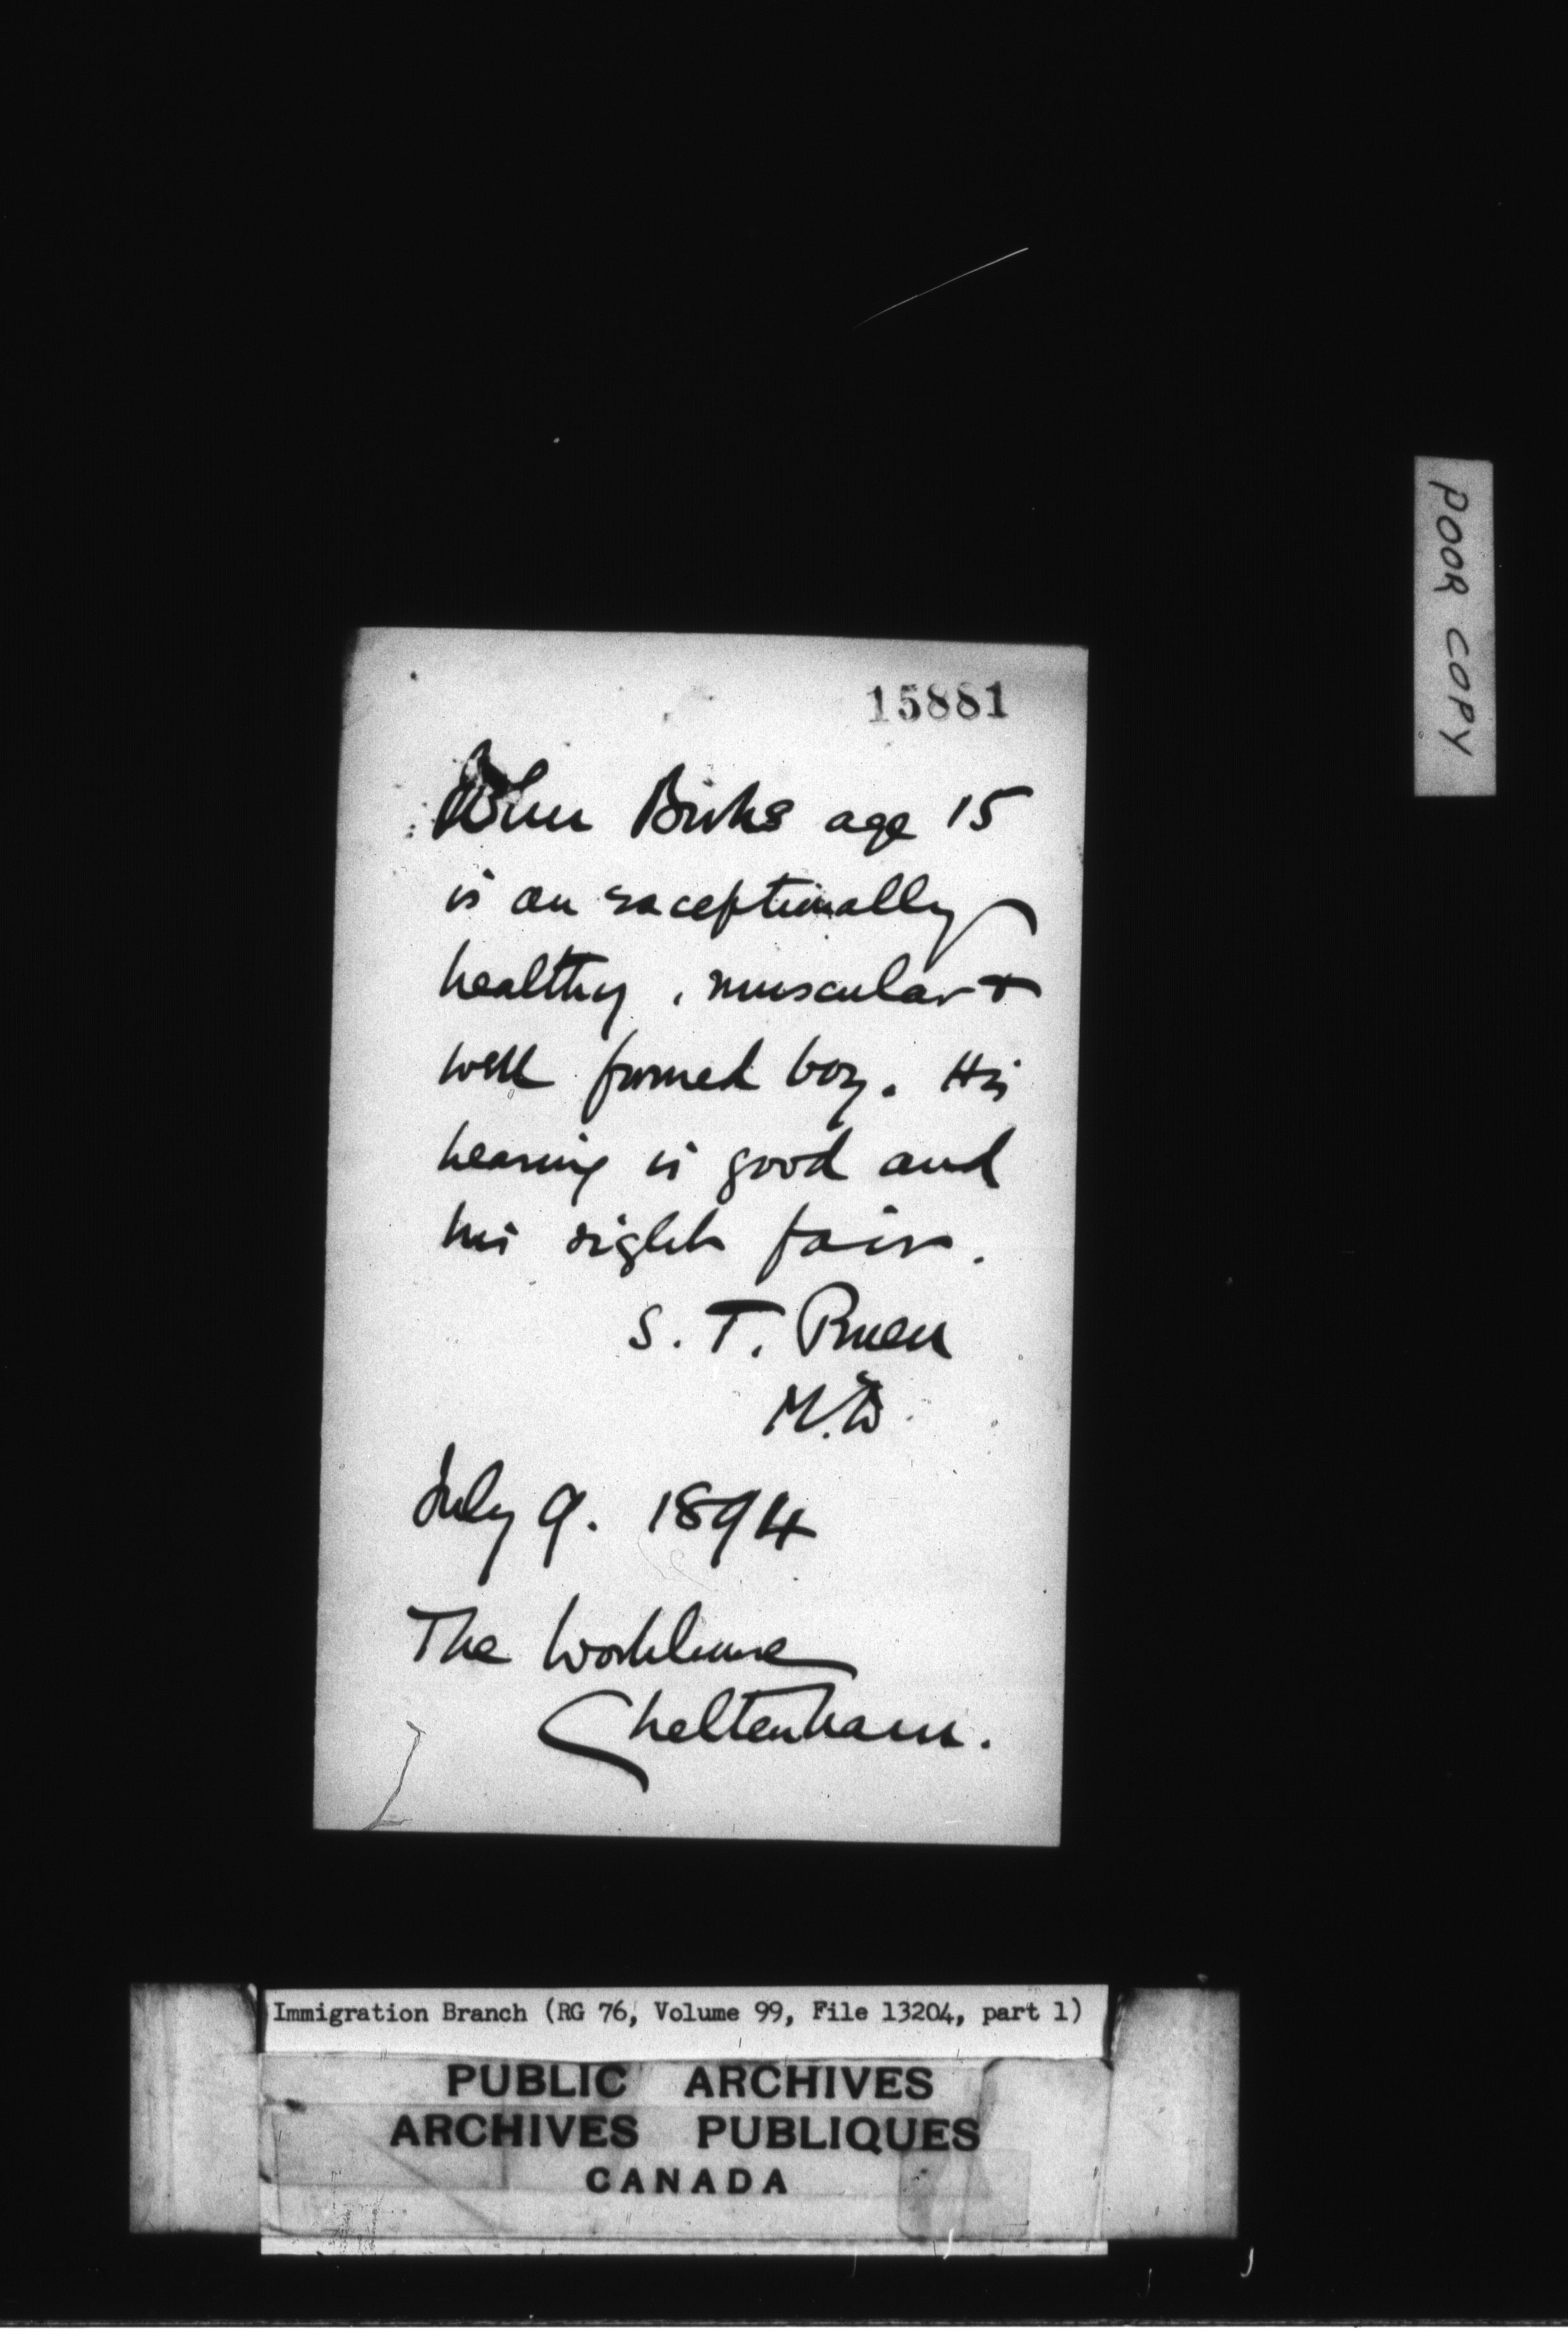 15881
John Birks age 15
is an exceptionally
healthy, muscular +
well formed boy. His
hearing is good and
his sight fair.
S. T. Pruen
M.D.
July 9. 1894
The Workhouse
Cheltenham.
POOR COPY
Immigration Branch (RG 76, Volume 99, File 13204, part 1)
PUBLIC ARCHIVES
ARCHIVES PUBLIQUES
CANADA